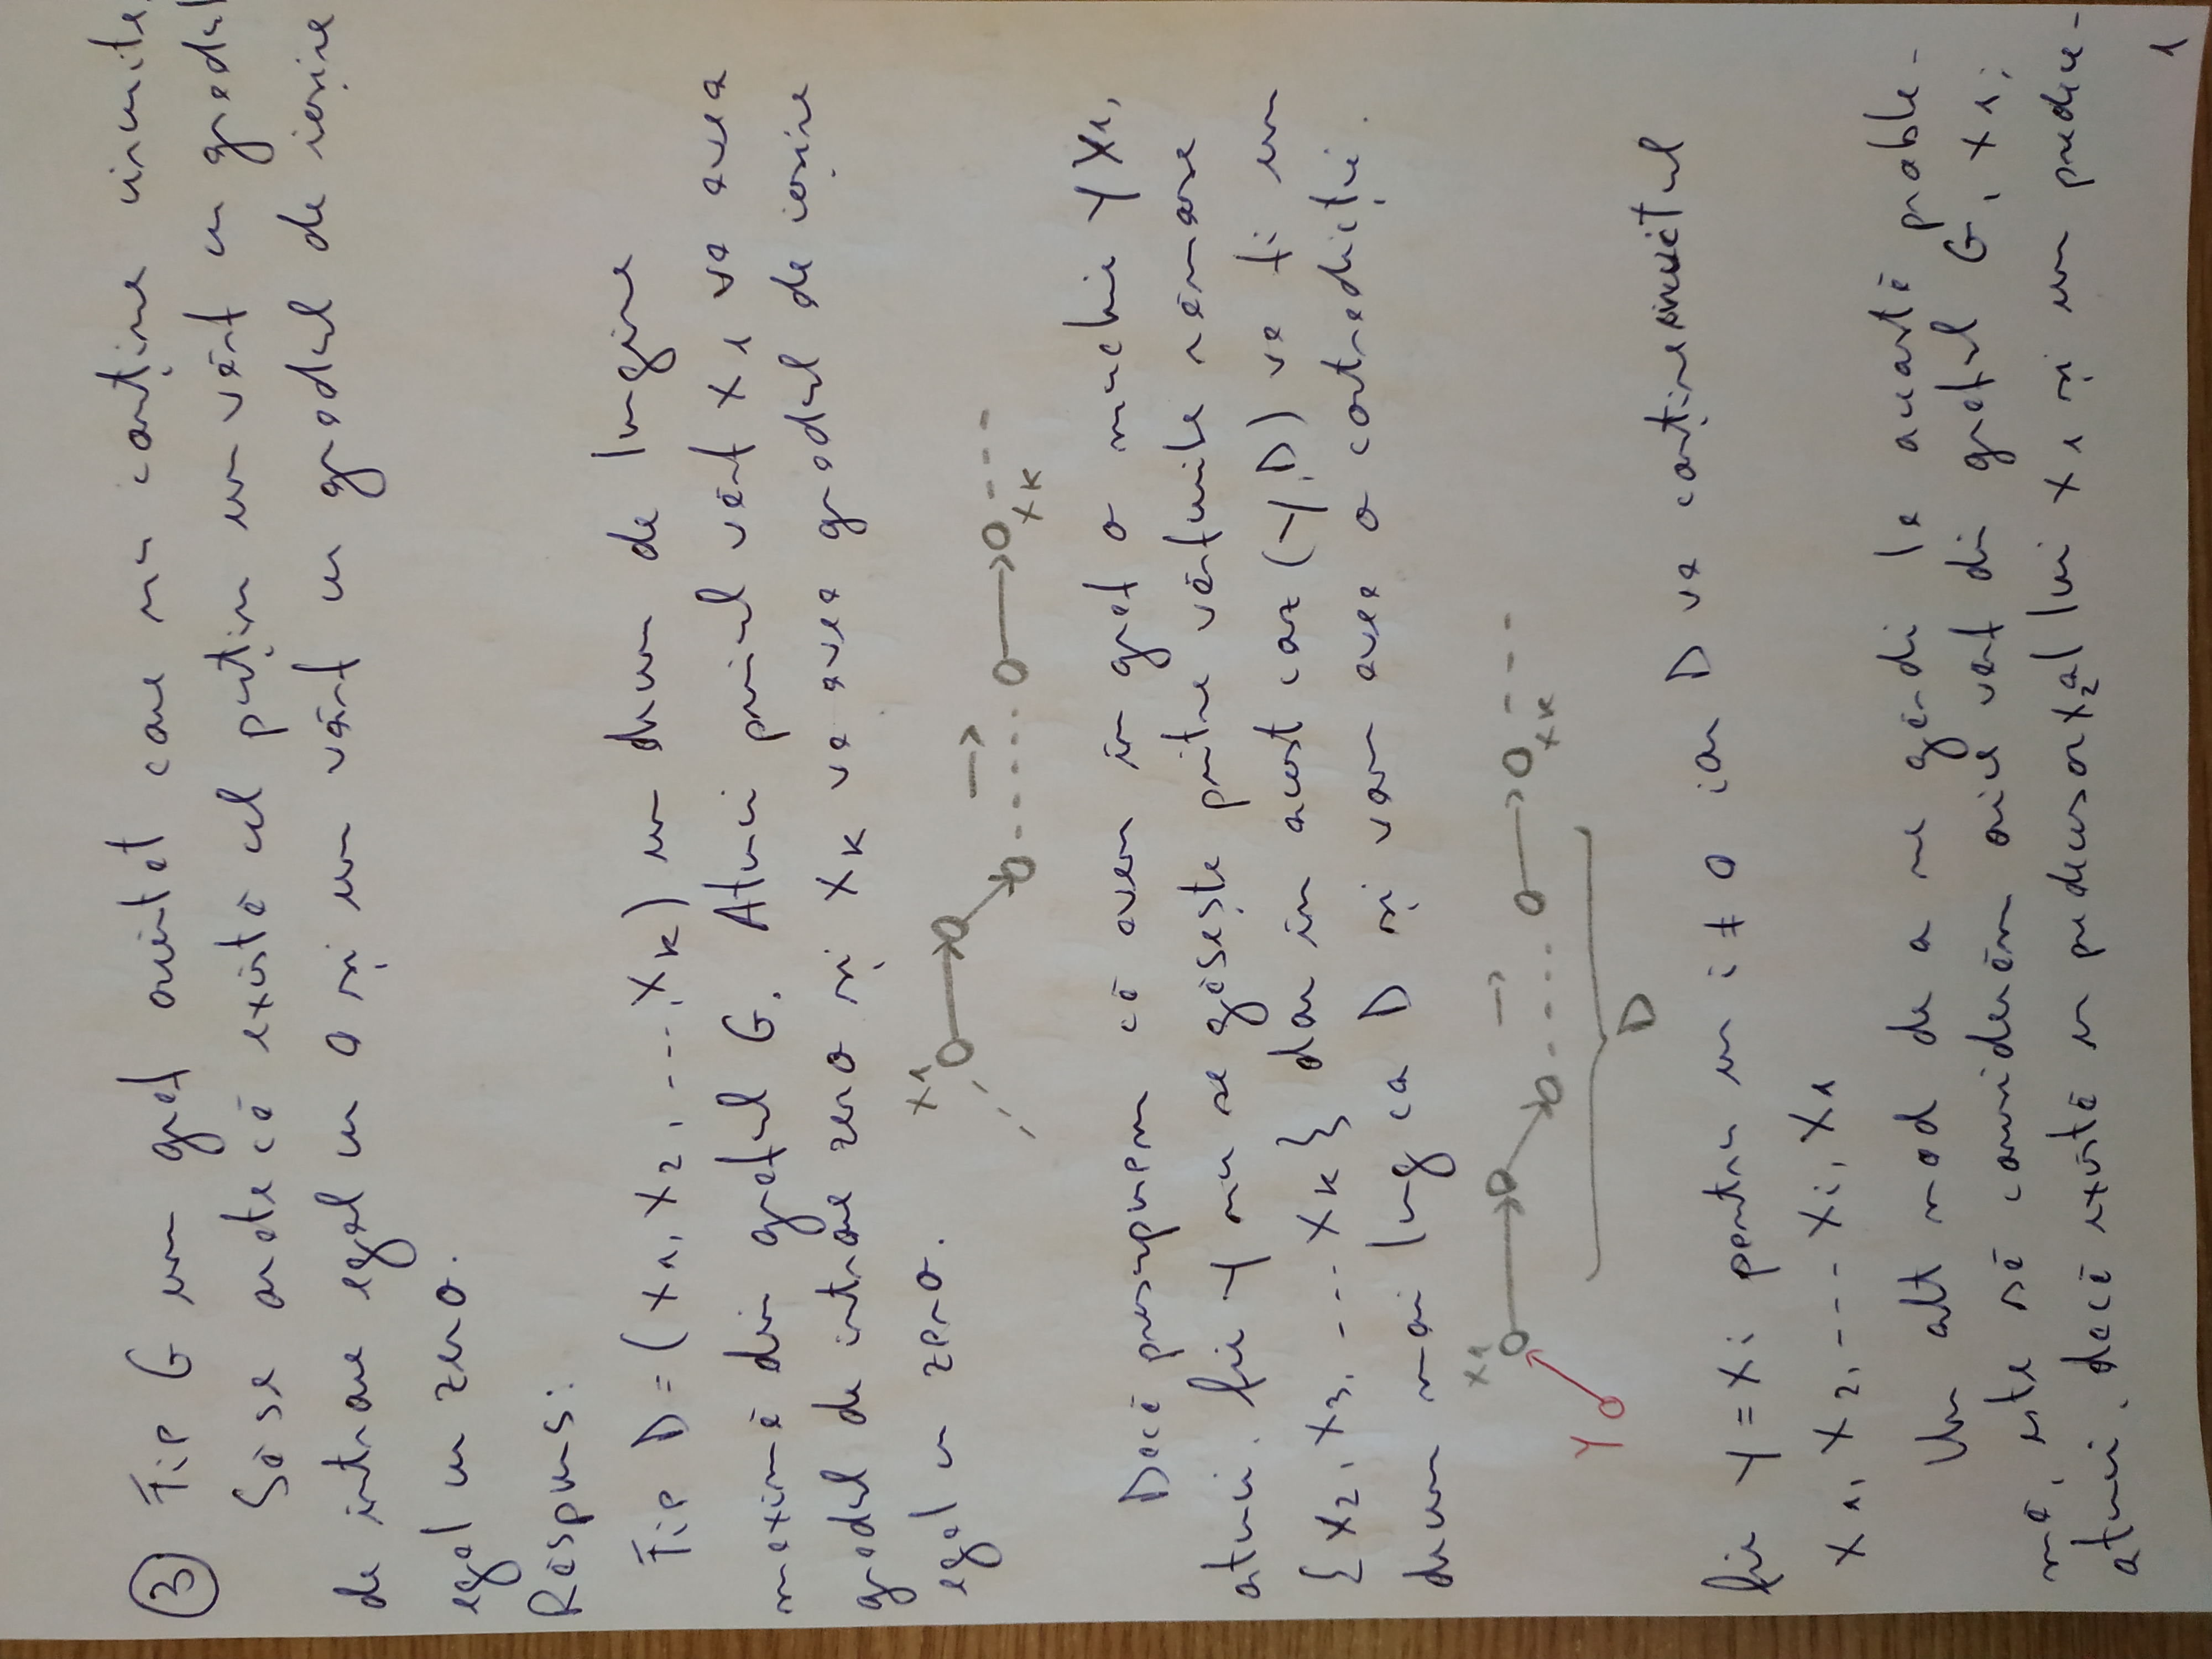 ③ Fie G un graf orientat care nu conține circuite.
Să se arate că există cel puțin un vârf cu gradul
de intrare egal cu 0 și un vârf cu gradul de ieșire
egal cu zero.
Răspuns:
Fie D = (x1, x2, ..., xk) un drum de lungime
maximă din graful G. Atunci primul vârf x1 va avea
gradul de intrare zero și xk va avea gradul de ieșire
egal cu zero.
x1
xk
Dacă presupunem că avem în graf o muchie yx1,
atunci, fie y nu se găsește printre vârfurile rămase
{x2, x3, ... xk} dar în acest caz (y, D) va fi un
drum mai lung ca D și vom avea o contradicție.
x1
xk
y
D
fie y = xi pentru un i ≠ 0 iar D va conține circuitul
x1, x2, ... xi, x1
Un alt mod de a ne gândi la această proble-
mă, este să considerăm orice vârf din graful G, x1;
atunci, dacă există un predecesor x2 al lui x1 și un predece-
1